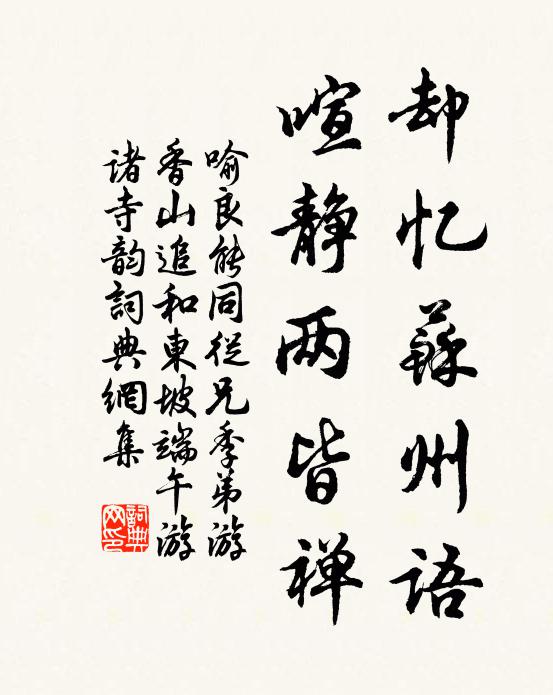 却忆蘇州語
喧静两皆禅
喻良能同従兄季弟游
香山追和東坡端午游
诸寺韵詞典網集
詞典网印